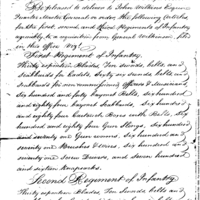 Be pleased to deliver to John Wilkins Esquire
Quarter Master General or order the following articles
for the first, second and third Regiments of Infantry
agreeably to a requisition from General Wilkinson, filed
in this Office Viz.
First Regiment of Infantry
Thirty repetition Blades, Ten Swords, belts, and
Scabbards for Cadets, Sixty six Swords, belts and
Scabbards for non commissioned Officers & Musicians
Six hundred and forty bayonet Belts, Six hundred
and forty bayonet Scabbards, Six hundred
and forty Cartouch Boxes with Belts, Six
hundred and eighty four Gun Slings, Six hundred
and seventy one Gun worms, Six hundred and
seventy one Brushes & wires, Six hundred and
seventy one Screw Drivers, and Seven hundred
and sixteen knapsacks.
Second Regiment of Infantry
Thirty repetition Blades, Ten Swords, belts and